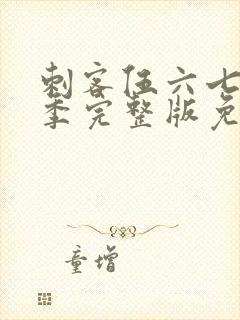 刺客伍六七
季完整版免
童增